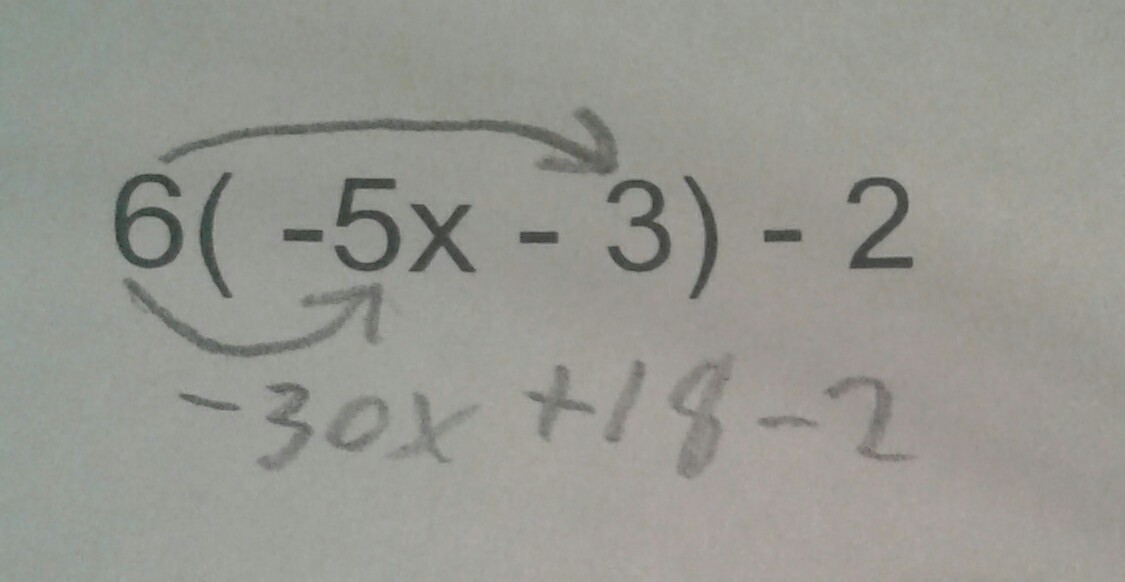 6( -5x - 3) - 2
-30x +18 -2